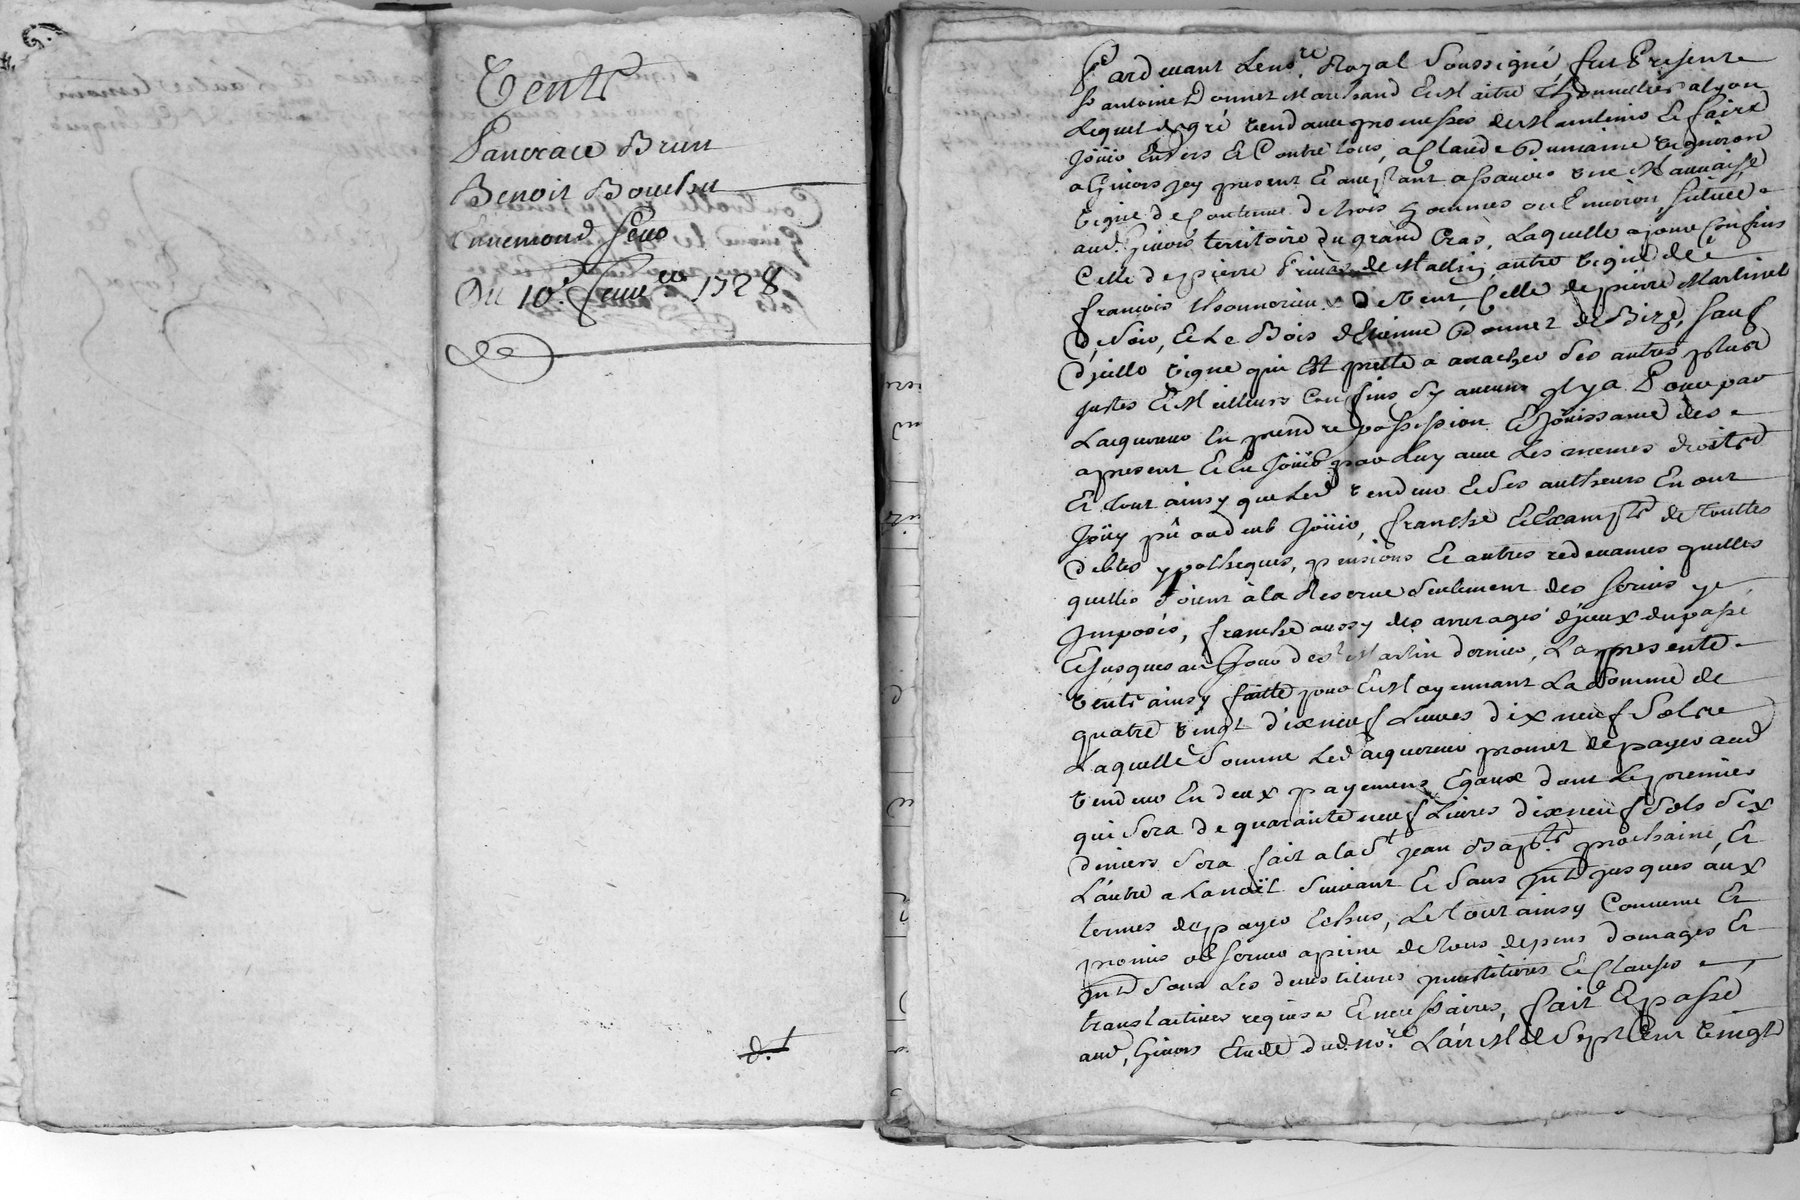 Vente
Pancrace Brun
Benoit Bouchu
Ennemond
Du 10e Janv.er 1728
Pardevant Le no.re Royal Soussigné, fut Présent
Sr antoine Donnet Marchand Et Maitre Thonnellier a Lyon
Lequel de gré vend avec promesses de Maintenir Et faire
Joüir Envers Et Contre tous, a Claude Dumaine Vigneron
a Givors jcy present Et aceptant assavoir une Mauvaise
vigne de Contenue de trois hommes ou Environ, Scituée
aud. Givors territoire du grand Cras, Laquelle a pour Confins
Celle de pierre Prive de Mallin, autre vigne de
françois Thonnerieu de vent, Celle de pierre Martinet
de Soir, Et Le Bois d'Etienne Donnet de Bize, Sauf
d'jcelle vigne qui Est preste a arracher Ses autres plus
justes Et Meilleurs Confins Sy aucuns jl y a Pour par
Lacquereur En prendre possession Et Joüissance dès
apresent Et En Joüir par Luy avec Les mesmes droits
Et tout ainsy que Led. vendeur Et Ses autheurs En ont
Joüy pû ou deub Joüir, franche Et Exampte de touttes
debtes ypotheques, pensions Et autres redevances quelles
quelles Soient à la Reserve Seulement des Servis y
Jmposés, franche aussy des arrerages d'jceux du passé
Et jusques au Jour de St Martin dernier, La presente
vente ainsy faitte pour Et Moyennant La Somme de
quatre vingt dixneuf Livres dixneuf Sols
Laquelle Somme Led. acquereur promet de payer aud.
vendeur En deux payemens Egaux dont Le premier
qui Sera de quarante neuf Livres dixneuf Sols Six
deniers Sera fait a la St jean Bapt.e prochaine, Et
Lautre a La noël Suivant Et Sans jnt. jusques aux
termes de payer Echus, Le tout ainsy Convenu Et
promis observer a peine de tous depens domages Et
jnt. Sous Les
translatives requises Et necessaires, fait Et passé
aud. Givors Etude dud. no.re L'an Mil Sept Cent vingt